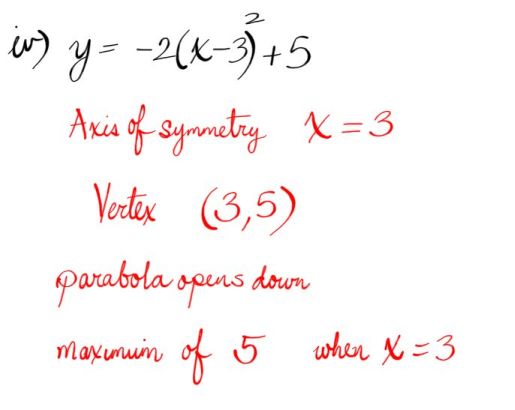 iv) y = -2(x-3)² + 5
Axis of symmetry x = 3
Vertex (3,5)
parabola opens down
maximum of 5 when x = 3